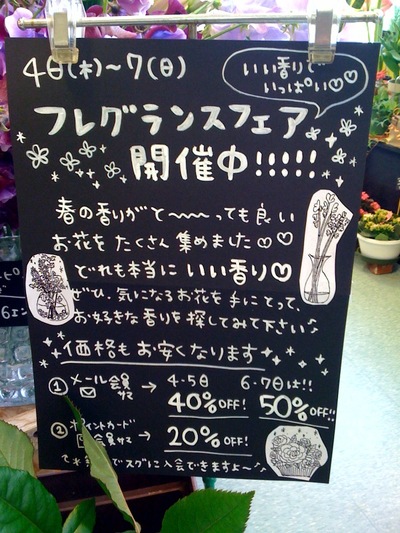 4日(木)~7(日)
いい香りで
いっぱい♡♡
フレグランスフェア
開催中!!!!!
春の香りがと〜〜っても良い
お花をたくさん集めました♡♡
どれも本当にいい香り♡
ぜひ、気になるお花を手にとって、
お好きな香りを探してみて下さい♪
価格もお安くなります
① メール会員サマ → 4・5日 6・7日は!!
40%OFF! 50%OFF!!
② ポイントカード会員サマ → 20%OFF!
でスグに入会できますよ〜♪